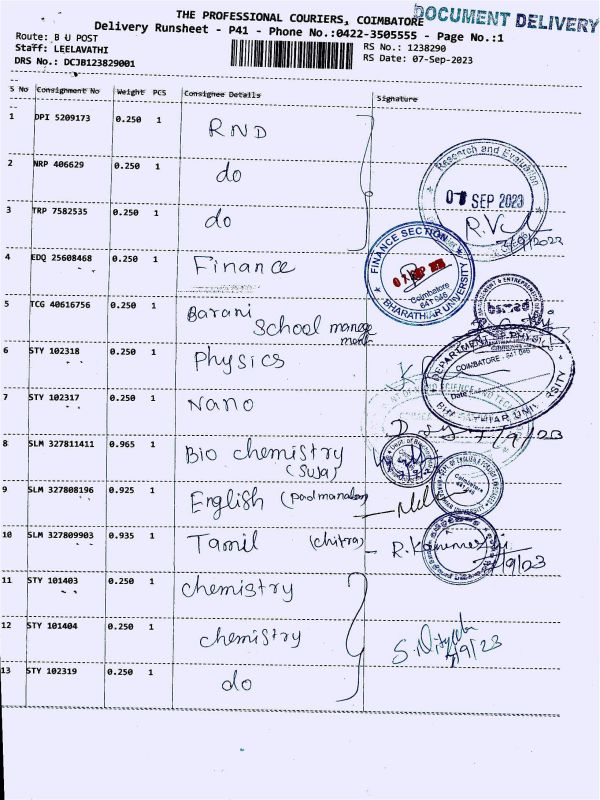 THE PROFESSIONAL COURIERS, COIMBATORE
DOCUMENT DELIVERY
Delivery Runsheet - P41 - Phone No.:0422-3505555 - Page No.:1
Route: B U POST
RS No.: 1238290
Staff: LEELAVATHI
RS Date: 07-Sep-2023
DRS No.: DCJB123829001
S No Consignment No Weight PCS Consignee Details Signature
1 DPI 5209173 0.250 1 RND
2 NRP 406629 0.250 1 do
3 TRP 7582535 0.250 1 do
Research and Evaluation
07 SEP 2023
7/9/2023
4 EDQ 25608468 0.250 1 Finance
FINANCE SECTION
Coimbatore
641 046
BHARATHIAR UNIVERSITY
5 TCG 40616756 0.250 1 Barani
School manage
ment
bsmed
6 STY 102318 0.250 1 Physics
DEPARTMENT OF PHYSICS
COIMBATORE - 641 046
Date
BHARATHIAR UNIVERSITY
7 STY 102317 0.250 1 Nano
7/9/23
8 SLM 327811411 0.965 1 Bio chemistry
(Suja)
9 SLM 327808196 0.925 1 English (Padmanaban)
Coimbatore
641 046
10 SLM 327809903 0.935 1 Tamil (chitra)
7/9/23
11 STY 101403 0.250 1 chemistry
12 STY 101404 0.250 1 chemistry
7/9/23
13 STY 102319 0.250 1 do